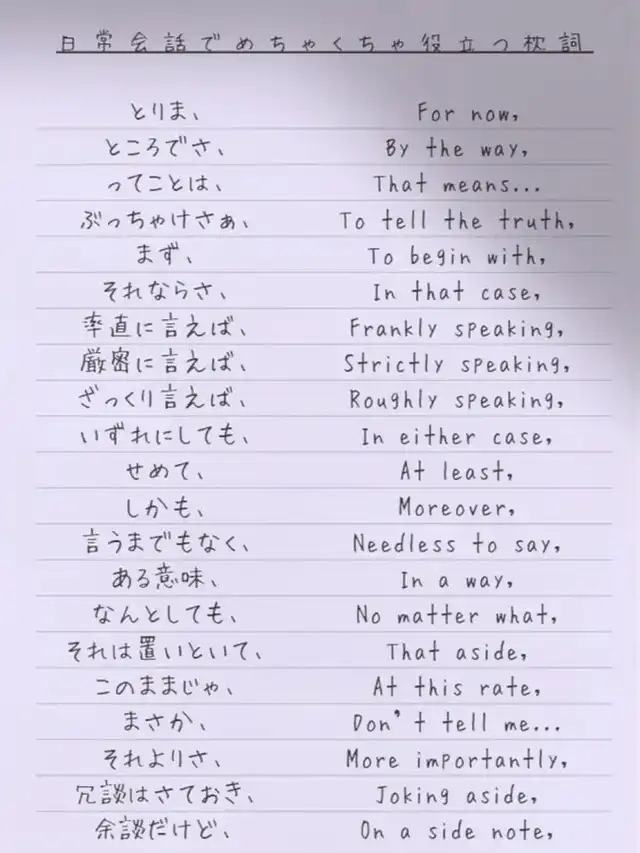 日常会話でめちゃくちゃ役立つ枕詞
とりま、 For now,
ところでさ、 By the way,
ってことは、 That means...
ぶっちゃけさぁ、 To tell the truth,
まず、 To begin with,
それならさ、 In that case,
率直に言えば、 Frankly speaking,
厳密に言えば、 Strictly speaking,
ざっくり言えば、 Roughly speaking,
いずれにしても、 In either case,
せめて、 At least,
しかも、 Moreover,
言うまでもなく、 Needless to say,
ある意味、 In a way,
なんとしても、 No matter what,
それは置いといて、 That aside,
このままじゃ、 At this rate,
まさか、 Don't tell me...
それよりさ、 More importantly,
冗談はさておき、 Joking aside,
余談だけど、 On a side note,